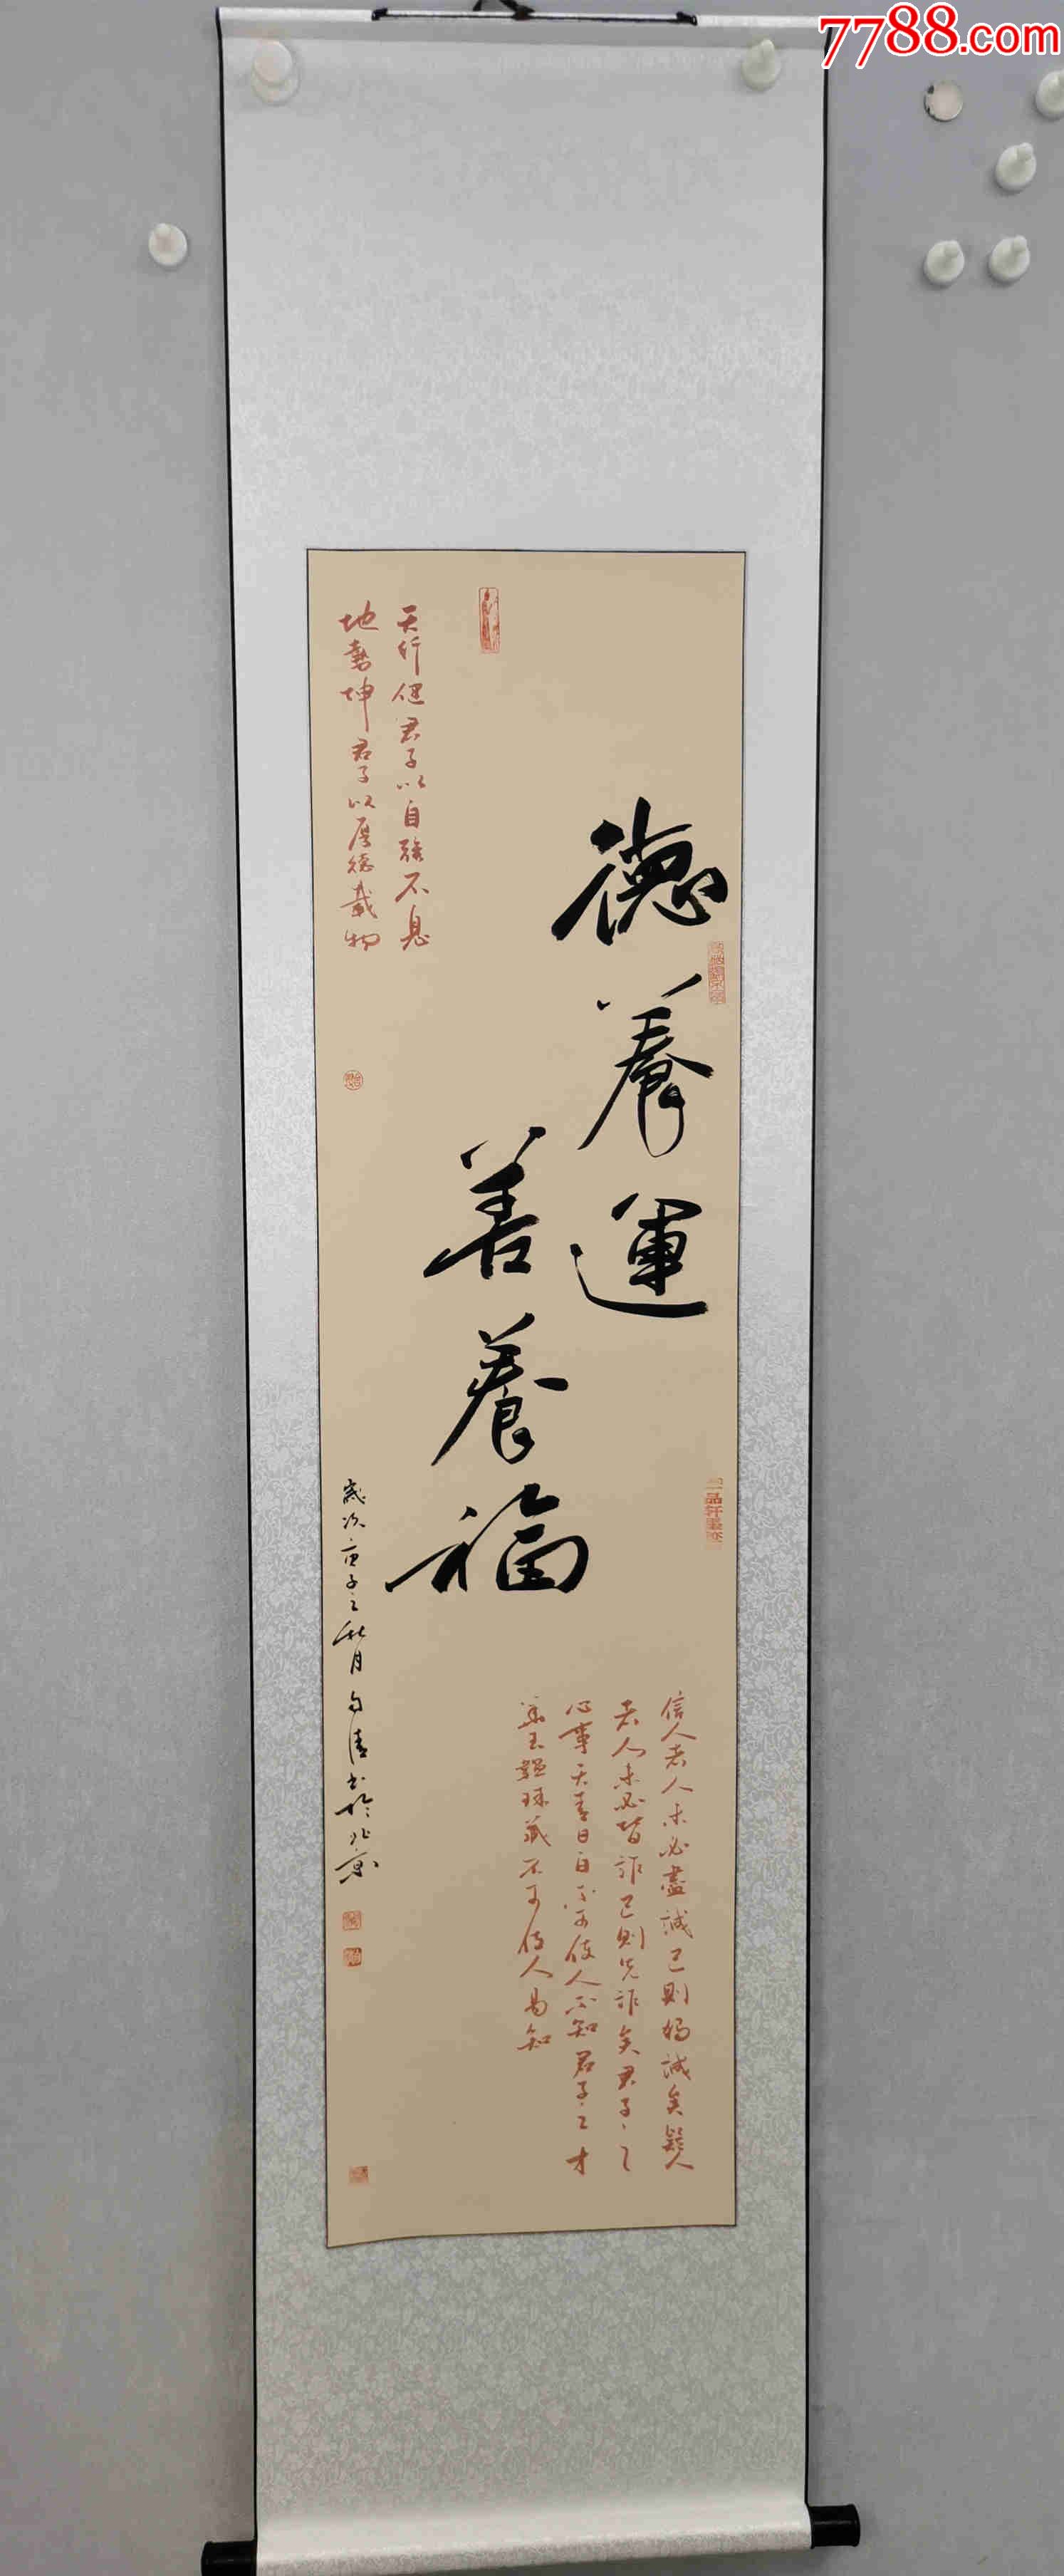 7788.com
德養運
善養福
天行健君子以自強不息
地勢坤君子以厚德載物
信人者人未必盡誠己則獨誠矣疑人
者人未必皆詐己則先詐矣君子之
心事天青日白不可使人不知君子之才
華玉韞珠藏不可使人易知
歲次庚子之秋月 清書於北京
一品軒墨迹